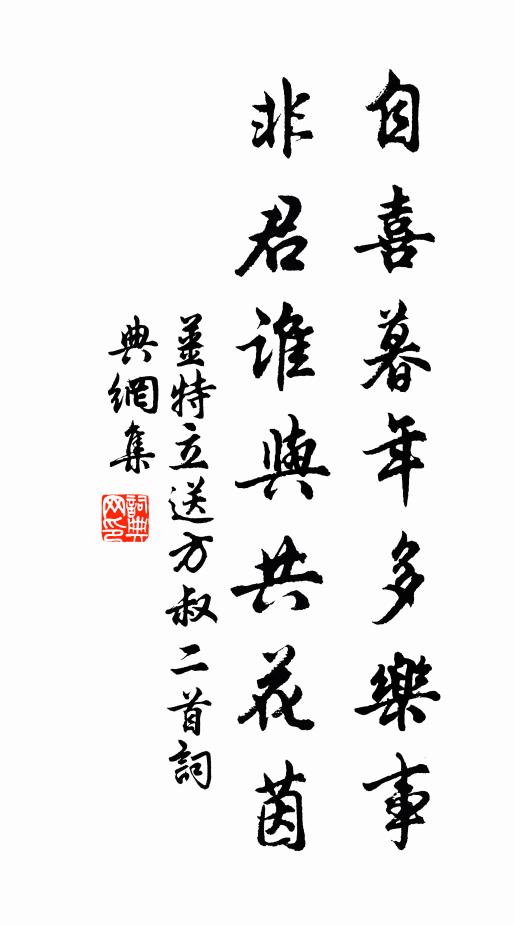 自喜暮年多樂事
非君誰與共花茵
姜特立送方叔二首詞
典網集
詞典
网印